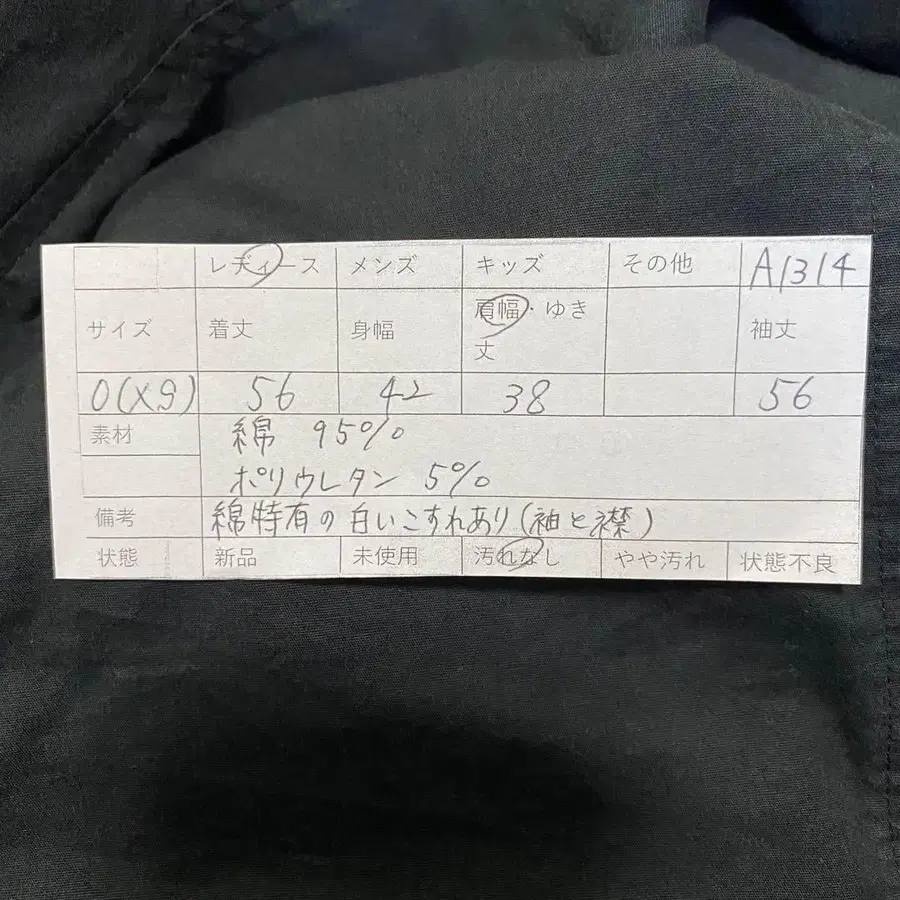 レディース メンズ キッズ その他 A1314
サイズ 着丈 身幅 肩幅・ゆき丈 袖丈
0(XS) 56 42 38 56
素材 綿 95%
ポリウレタン 5%
備考 綿特有の白いこすれあり(袖と襟)
状態 新品 未使用 汚れなし やや汚れ 状態不良